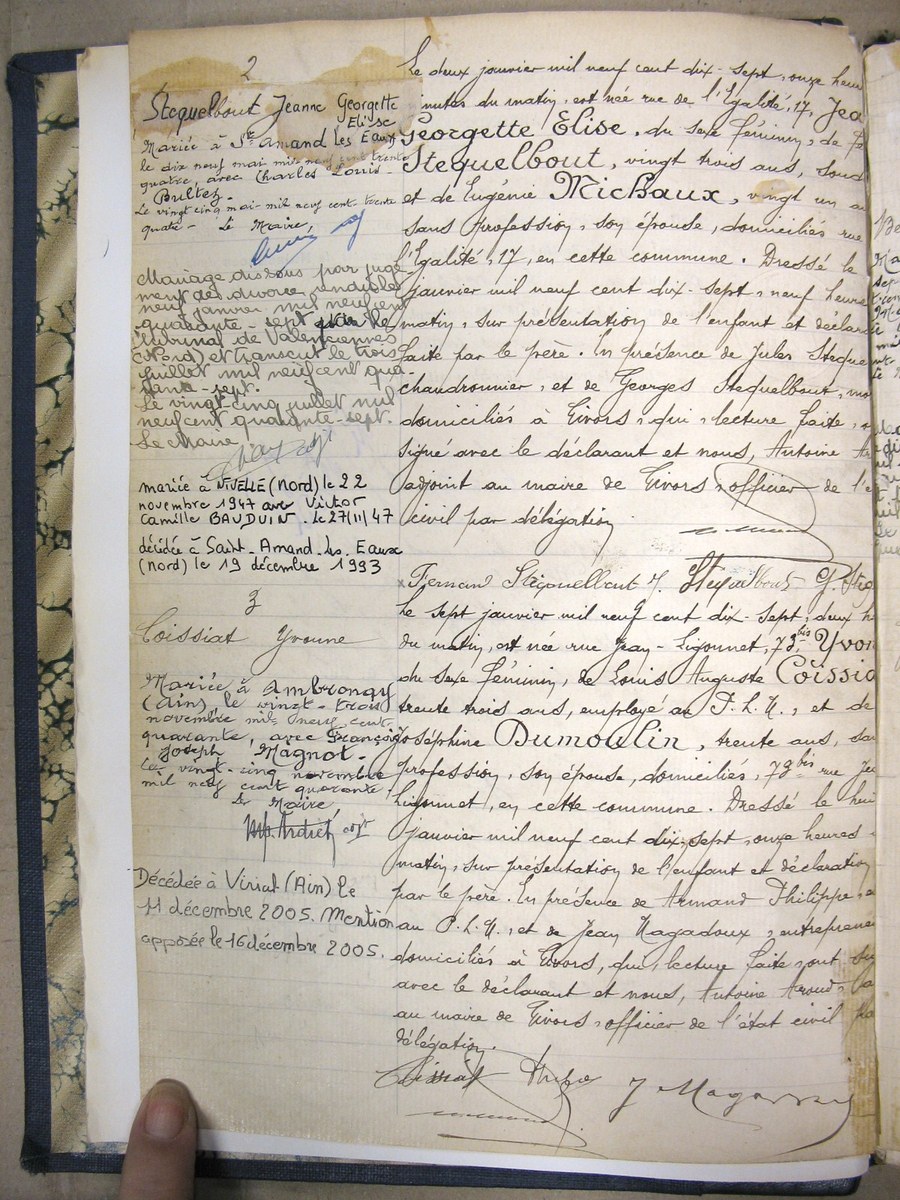 2
Stequelbout Jeanne Georgette
Elise
Mariée à St Amand Les Eaux
le dix neuf mai mil neuf cent trente
quatre, avec Charles Louis
Bultez.
Le vingt cinq mai mil neuf cent trente
quatre. Le Maire,
Mariage dissous par juge
ment de divorce rendu le
neuf janvier mil neuf cent
quarante-sept par le
tribunal de Valenciennes
(Nord) et transcrit le trois
juillet mil neuf cent qua
rante-sept.
Le vingt-cinq juillet mil
neuf cent quarante-sept.
Le Maire
mariée à NIVELLE (nord) le 22
novembre 1947 avec Victor
Camille BAUDUIN. le 27/11/47
décédée à Saint-Amand-les-Eaux
(nord) le 19 décembre 1993
Le deux janvier mil neuf cent dix-sept, onze heur
inutes du matin, est née rue de l'Egalité, 17, Jea
Georgette Elise, du sexe féminin, de
Stequelbout, vingt trois ans,
et de Eugénie Michaux, vingt un
sans profession, son épouse, domiciliés rue
l'Egalité, 17, en cette commune. Dressé le
janvier mil neuf cent dix-sept, neuf heure
matin, sur présentation de l'enfant et déclara
faite par le père. En présence de Jules Steque
chaudronnier, et de Georges Stequelbout,
domiciliés à Givors, qui, lecture faite,
signé avec le déclarant et nous, Antoine
adjoint au maire de Givors, officier de l'é
civil par délégation
Fernand Stequelbout J. Stequelbout G. Ste
3
Coissiat Yvonne
Mariée à Ambronay
(Ain), le vingt-trois
novembre mil neuf cent
quarante, avec François
Joseph Magnot.
Le vingt-cinq novembre
mil neuf cent quarante
Le Maire,
Décédée à Viriat (Ain) le
11 décembre 2005. Mention
apposée le 16 décembre 2005.
Le sept janvier mil neuf cent dix-sept, deux h
du matin, est née rue Jean-Ligonnet, 73bis, Yvon
du sexe féminin, de Louis Auguste Coissia
trente trois ans, employé au P.L.M., et de
Joséphine Dumoulin, trente ans, san
profession, son épouse, domiciliés, 73bis rue Jea
Ligonnet, en cette commune. Dressé le hui
janvier mil neuf cent dix-sept, onze heures
matin, sur présentation de l'enfant et déclaration
par le père. En présence de Armand Philippe,
au P.L.M., et de Jean Magadoux, entreprene
domiciliés à Givors, qui, lecture faite, ont
avec le déclarant et nous, Antoine
au maire de Givors, officier de l'état civil
délégation.
Coissiat